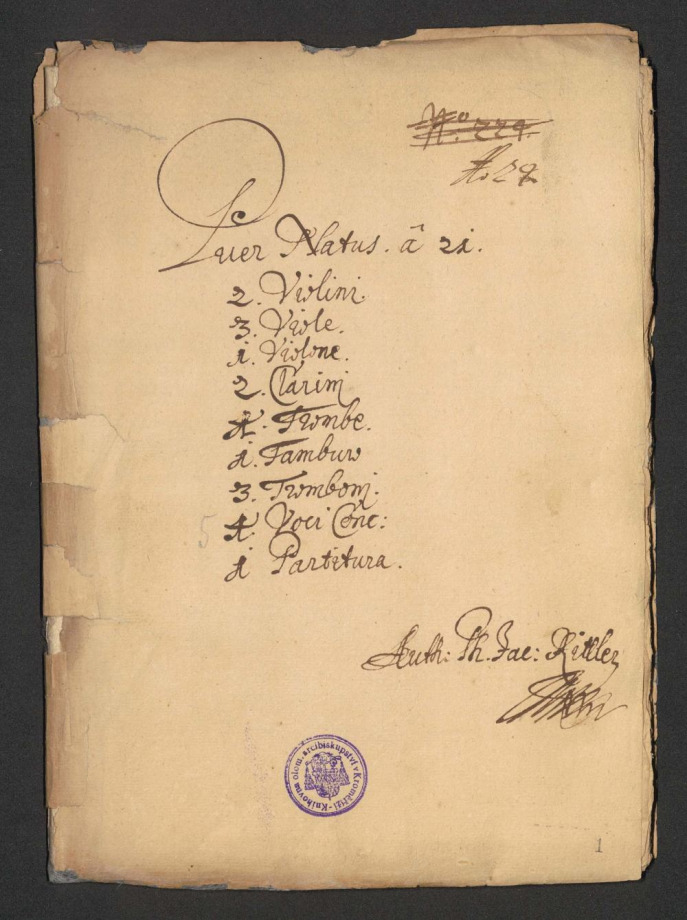 No: 224.
No 29
Puer Natus. â 21.
2. Violini.
3. Viole.
1. Violone.
2. Clarinj
4. Trombe.
1. Tamburo
3. Trombonj.
5
4. Voci Conc:
1 Partitura.
Auth: Ph. Jac: Rittler
Knihovna olom. arcibiskupství v Kroměříži
1